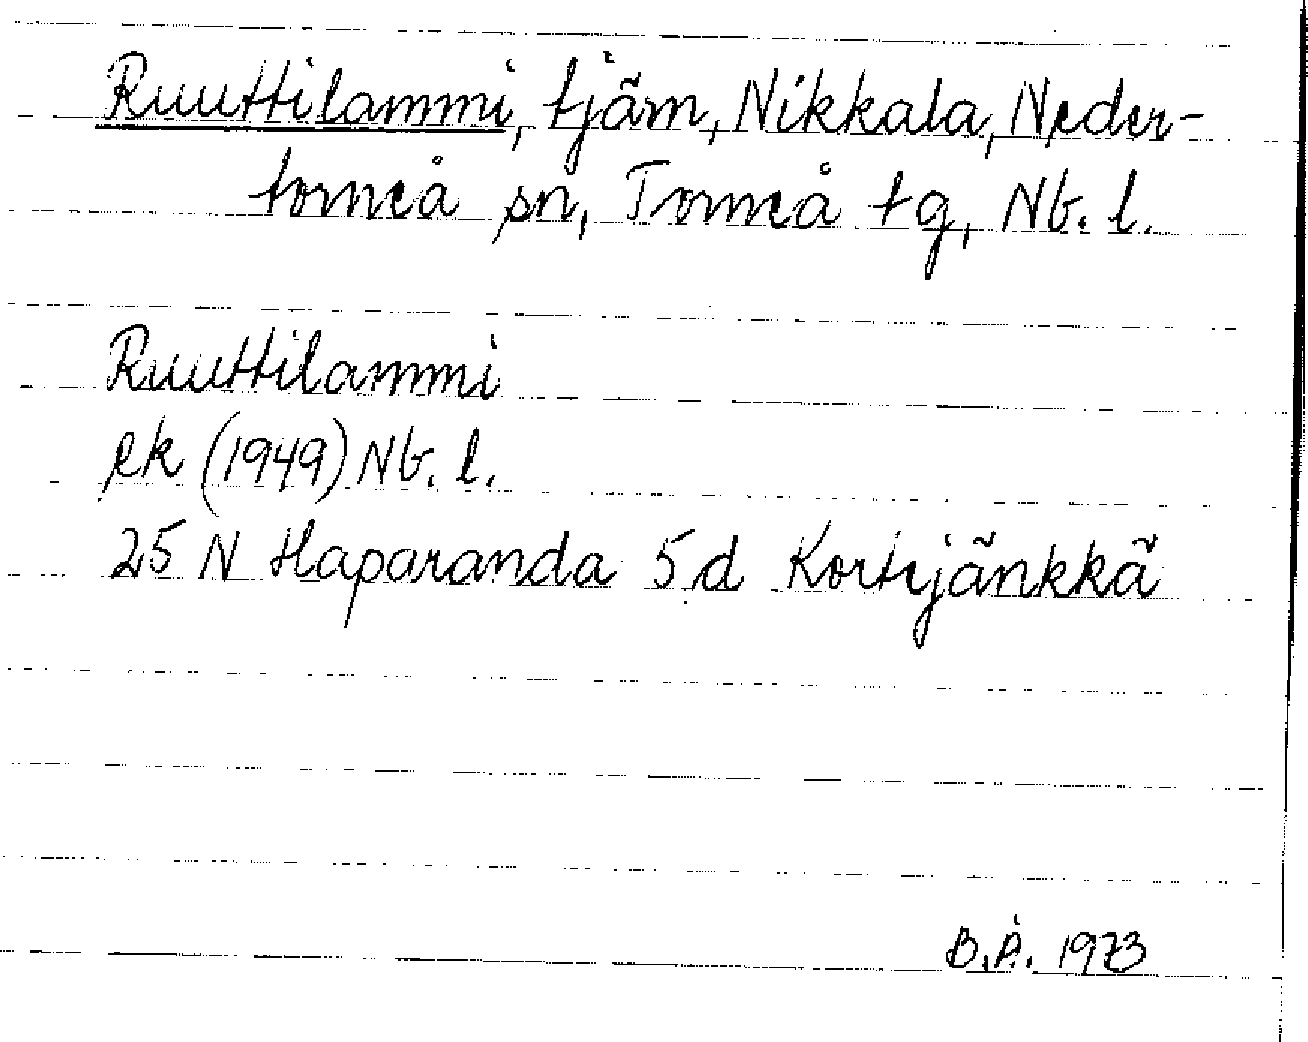 Ruuttilammi, tjärn, Nikkala, Neder-
torneå sn, Torneå tg, Nb. l.
Ruuttilammi
ek (1949) Nb. l.
25 N Haparanda 5 d Kortejänkkä
B.Å. 1973